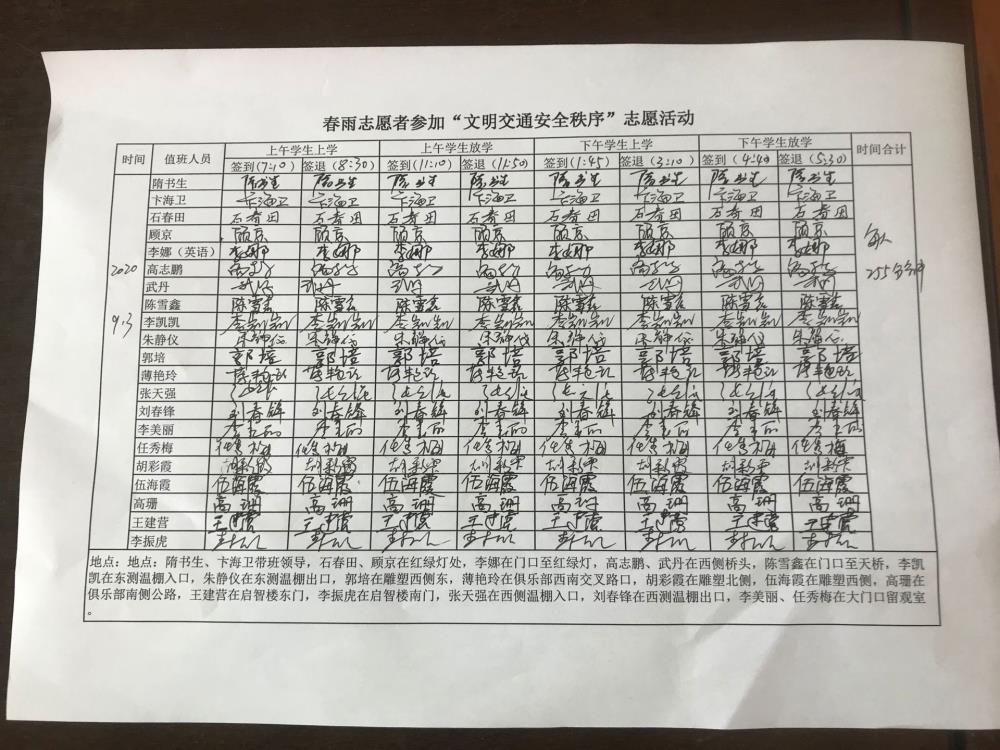 春雨志愿者参加“文明交通安全秩序”志愿活动
时间 值班人员 上午学生上学 上午学生放学 下午学生上学 下午学生放学 时间合计
签到(7:10) 签退(8:30) 签到(11:10) 签退(11:50) 签到(1:45) 签退(3:10) 签到(4:40) 签退(5:30)
隋书生 隋书生 隋书生 隋书生 隋书生 隋书生 隋书生 隋书生 隋书生
卞海卫 卞海卫 卞海卫 卞海卫 卞海卫 卞海卫 卞海卫 卞海卫 卞海卫
石春田 石春田 石春田 石春田 石春田 石春田 石春田 石春田 石春田
顾京 顾京 顾京 顾京 顾京 顾京 顾京 顾京 顾京
李娜（英语） 李娜 李娜 李娜 李娜 李娜 李娜 李娜 李娜
2020 高志鹏 255分钟
武丹
陈雪鑫 陈雪鑫 陈雪鑫 陈雪鑫 陈雪鑫 陈雪鑫 陈雪鑫 陈雪鑫 陈雪鑫
9.3 李凯凯 李凯凯 李凯凯 李凯凯 李凯凯 李凯凯 李凯凯 李凯凯 李凯凯
朱静仪 朱静仪 朱静仪 朱静仪 朱静仪 朱静仪 朱静仪 朱静仪 朱静仪
郭培 郭培 郭培 郭培 郭培 郭培 郭培 郭培 郭培
薄艳玲 薄艳玲 薄艳玲 薄艳玲 薄艳玲 薄艳玲 薄艳玲 薄艳玲 薄艳玲
张天强
刘春锋 刘春锋 刘春锋 刘春锋 刘春锋 刘春锋 刘春锋 刘春锋 刘春锋
李美丽
任秀梅 任秀梅 任秀梅 任秀梅 任秀梅 任秀梅 任秀梅 任秀梅 任秀梅
胡彩霞 胡彩霞 胡彩霞 胡彩霞 胡彩霞 胡彩霞 胡彩霞 胡彩霞 胡彩霞
伍海霞 伍海霞 伍海霞 伍海霞 伍海霞 伍海霞 伍海霞 伍海霞 伍海霞
高珊 高珊 高珊 高珊 高珊 高珊 高珊 高珊 高珊
王建营 王建营 王建营 王建营 王建营 王建营 王建营 王建营 王建营
李振虎
地点：地点：隋书生、卞海卫带班领导，石春田、顾京在红绿灯处，李娜在门口至红绿灯，高志鹏、武丹在西侧桥头，陈雪鑫在门口至天桥，李凯
凯在东测温棚入口，朱静仪在东测温棚出口，郭培在雕塑西侧东，薄艳玲在俱乐部西南交叉路口，胡彩霞在雕塑北侧，伍海霞在雕塑西侧，高珊在
俱乐部南侧公路，王建营在启智楼东门，李振虎在启智楼南门，张天强在西侧温棚入口，刘春锋在西测温棚出口，李美丽、任秀梅在大门口留观室
。